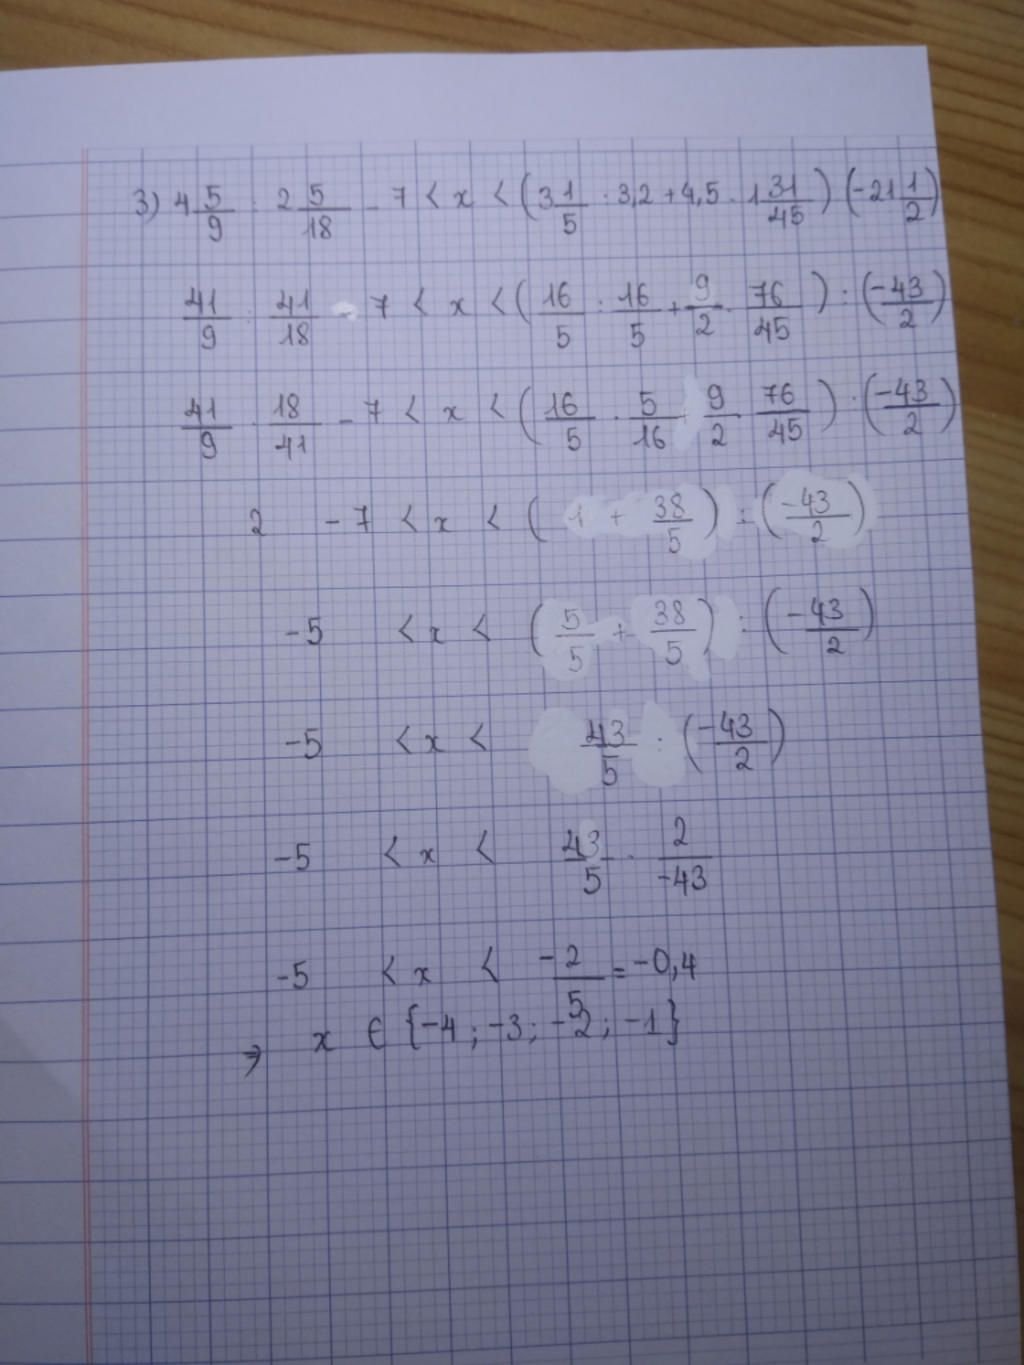 3) 4 5/9 : 2 5/18 - 7 < x < (3 1/5 : 3,2 + 4,5 · 1 31/45) : (-21 1/2)
41/9 : 41/18 - 7 < x < (16/5 : 16/5 + 9/2 · 76/45) : (-43/2)
41/9 · 18/41 - 7 < x < (16/5 · 5/16 + 9/2 · 76/45) : (-43/2)
2 - 7 < x < (1 + 38/5) : (-43/2)
-5 < x < (5/5 + 38/5) : (-43/2)
-5 < x < 43/5 : (-43/2)
-5 < x < 43/5 · 2/-43
-5 < x < -2/5 = -0,4
=> x ∈ {-4; -3; -2; -1}